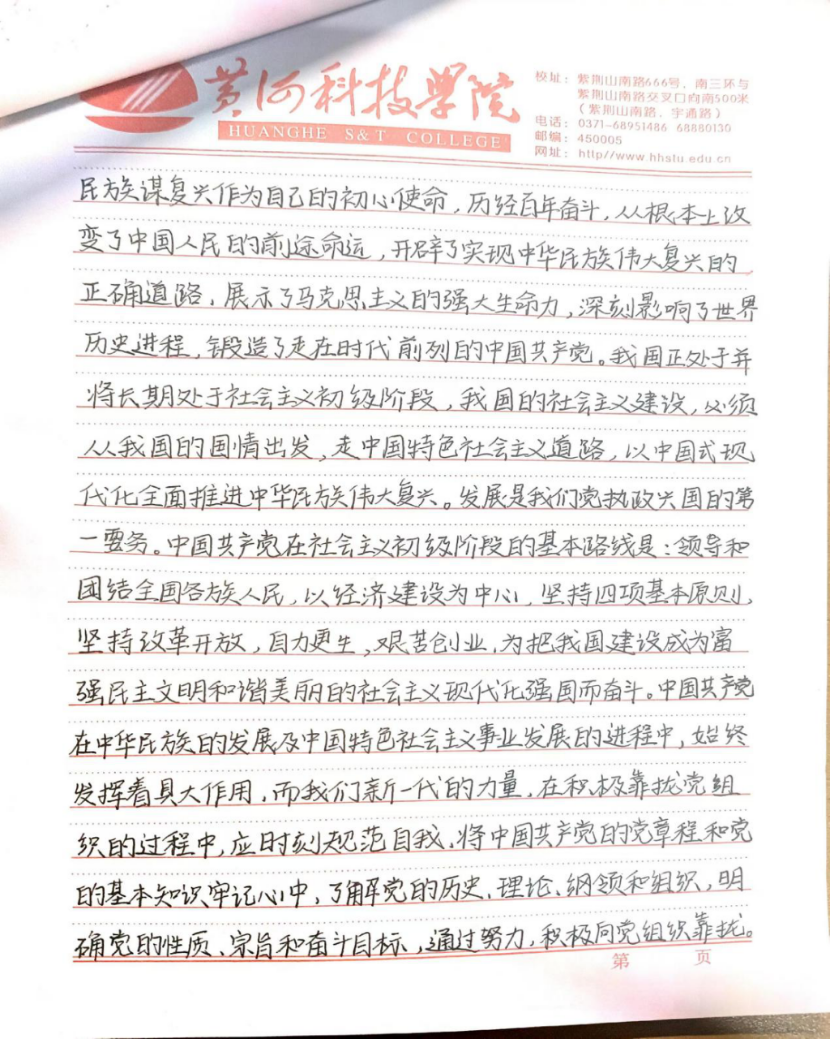 黄河科技学院
HUANGHE S&T COLLEGE
校址：紫荆山南路666号、南三环与
紫荆山南路交叉口向南500米
（紫荆山南路、宇通路）
电话：0371-68951486 68880130
邮编：450005
网址：http//www.hhstu.edu.cn
民族谋复兴作为自己的初心使命，历经百年奋斗，从根本上改
变了中国人民的前途命运，开辟了实现中华民族伟大复兴的
正确道路，展示了马克思主义的强大生命力，深刻影响了世界
历史进程，锻造了走在时代前列的中国共产党。我国正处于并
将长期处于社会主义初级阶段，我国的社会主义建设，必须
从我国的国情出发，走中国特色社会主义道路，以中国式现
代化全面推进中华民族伟大复兴。发展是我们党执政兴国的第
一要务。中国共产党在社会主义初级阶段的基本路线是：领导和
团结全国各族人民，以经济建设为中心，坚持四项基本原则，
坚持改革开放，自力更生，艰苦创业，为把我国建设成为富
强民主文明和谐美丽的社会主义现代化强国而奋斗。中国共产党
在中华民族的发展及中国特色社会主义事业发展的进程中，始终
发挥着具大作用，而我们新一代的力量，在积极靠拢党组
织的过程中，应时刻规范自我，将中国共产党的党章程和党
的基本知识牢记心中，了解党的历史、理论、纲领和组织，明
确党的性质、宗旨和奋斗目标，通过努力，积极向党组织靠拢。
第 页